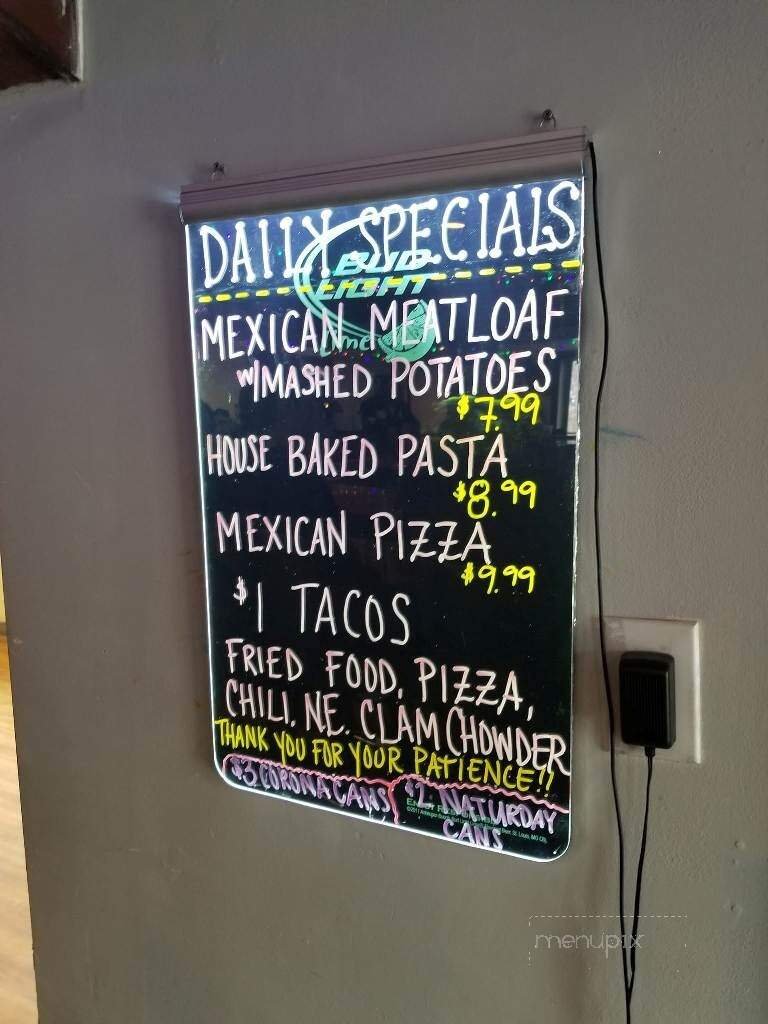 DAILY SPECIALS
BUD
LIGHT
Lime
MEXICAN MEATLOAF
W/MASHED POTATOES
$7.99
HOUSE BAKED PASTA
$8.99
MEXICAN PIZZA
$9.99
$1 TACOS
FRIED FOOD, PIZZA,
CHILI, N.E. CLAM CHOWDER
THANK YOU FOR YOUR PATIENCE!!
$3 CORONA CANS
$2 NATURDAY
CANS
menupix